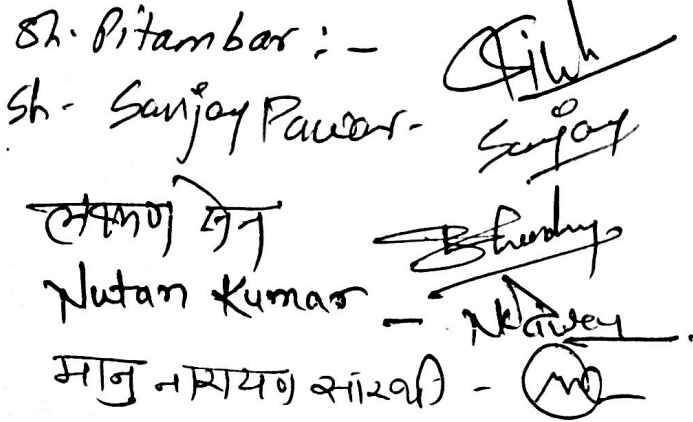 Sh. Pitambar :-
Sh - Sanjay Pawar - Sanjay
लक्ष्मण सेन
Nutan Kumar -
भानु नारायण सारथी -